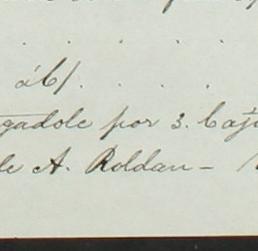 . . . . .
á 6/. . . . .
gadole por 3. Caj
le A. Roldan -